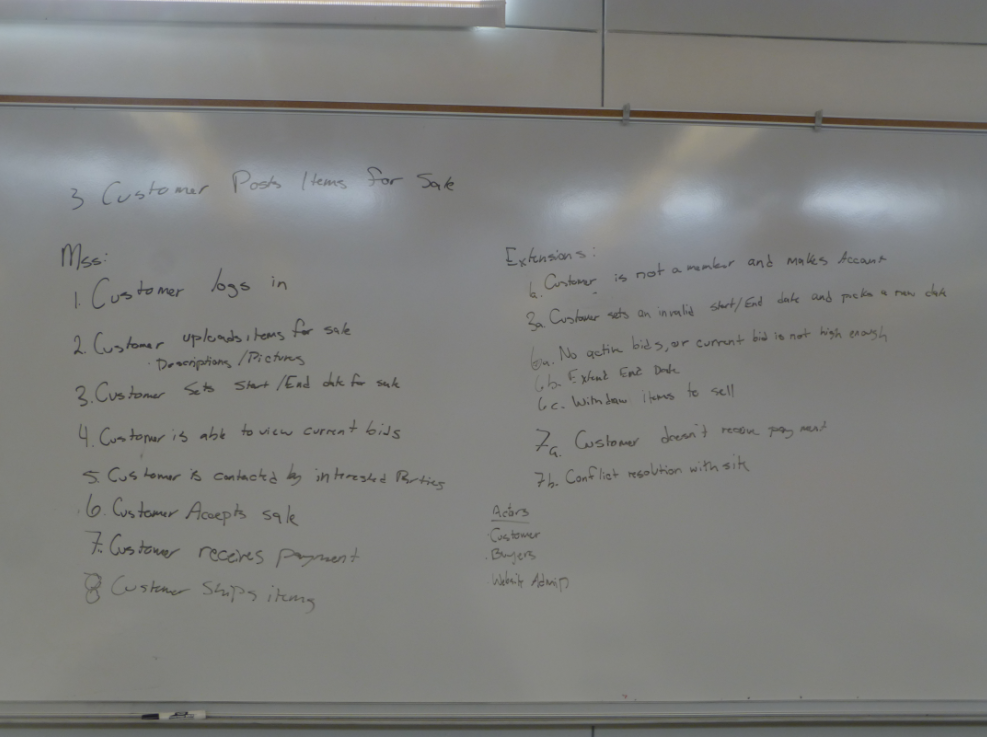 3 Customer Posts Items for Sale
Mss:
1. Customer logs in
2. Customer uploads items for sale
· Descriptions/Pictures
3. Customer Sets Start/End date for sale
4. Customer is able to view current bids
5. Customer is contacted by interested Parties
6. Customer Accepts sale
7. Customer receives payment
8 Customer Ships items
Extensions:
a. Customer is not a member and makes Account
3a. Customer sets an invalid start/End date and picks a new date
6a. No active bids, or current bid is not high enough
6b. Extend End Date
6c. Withdraw items to sell
7a. Customer doesn't receive payment
7b. Conflict resolution with site
Actors
Customer
Buyers
Website Admin